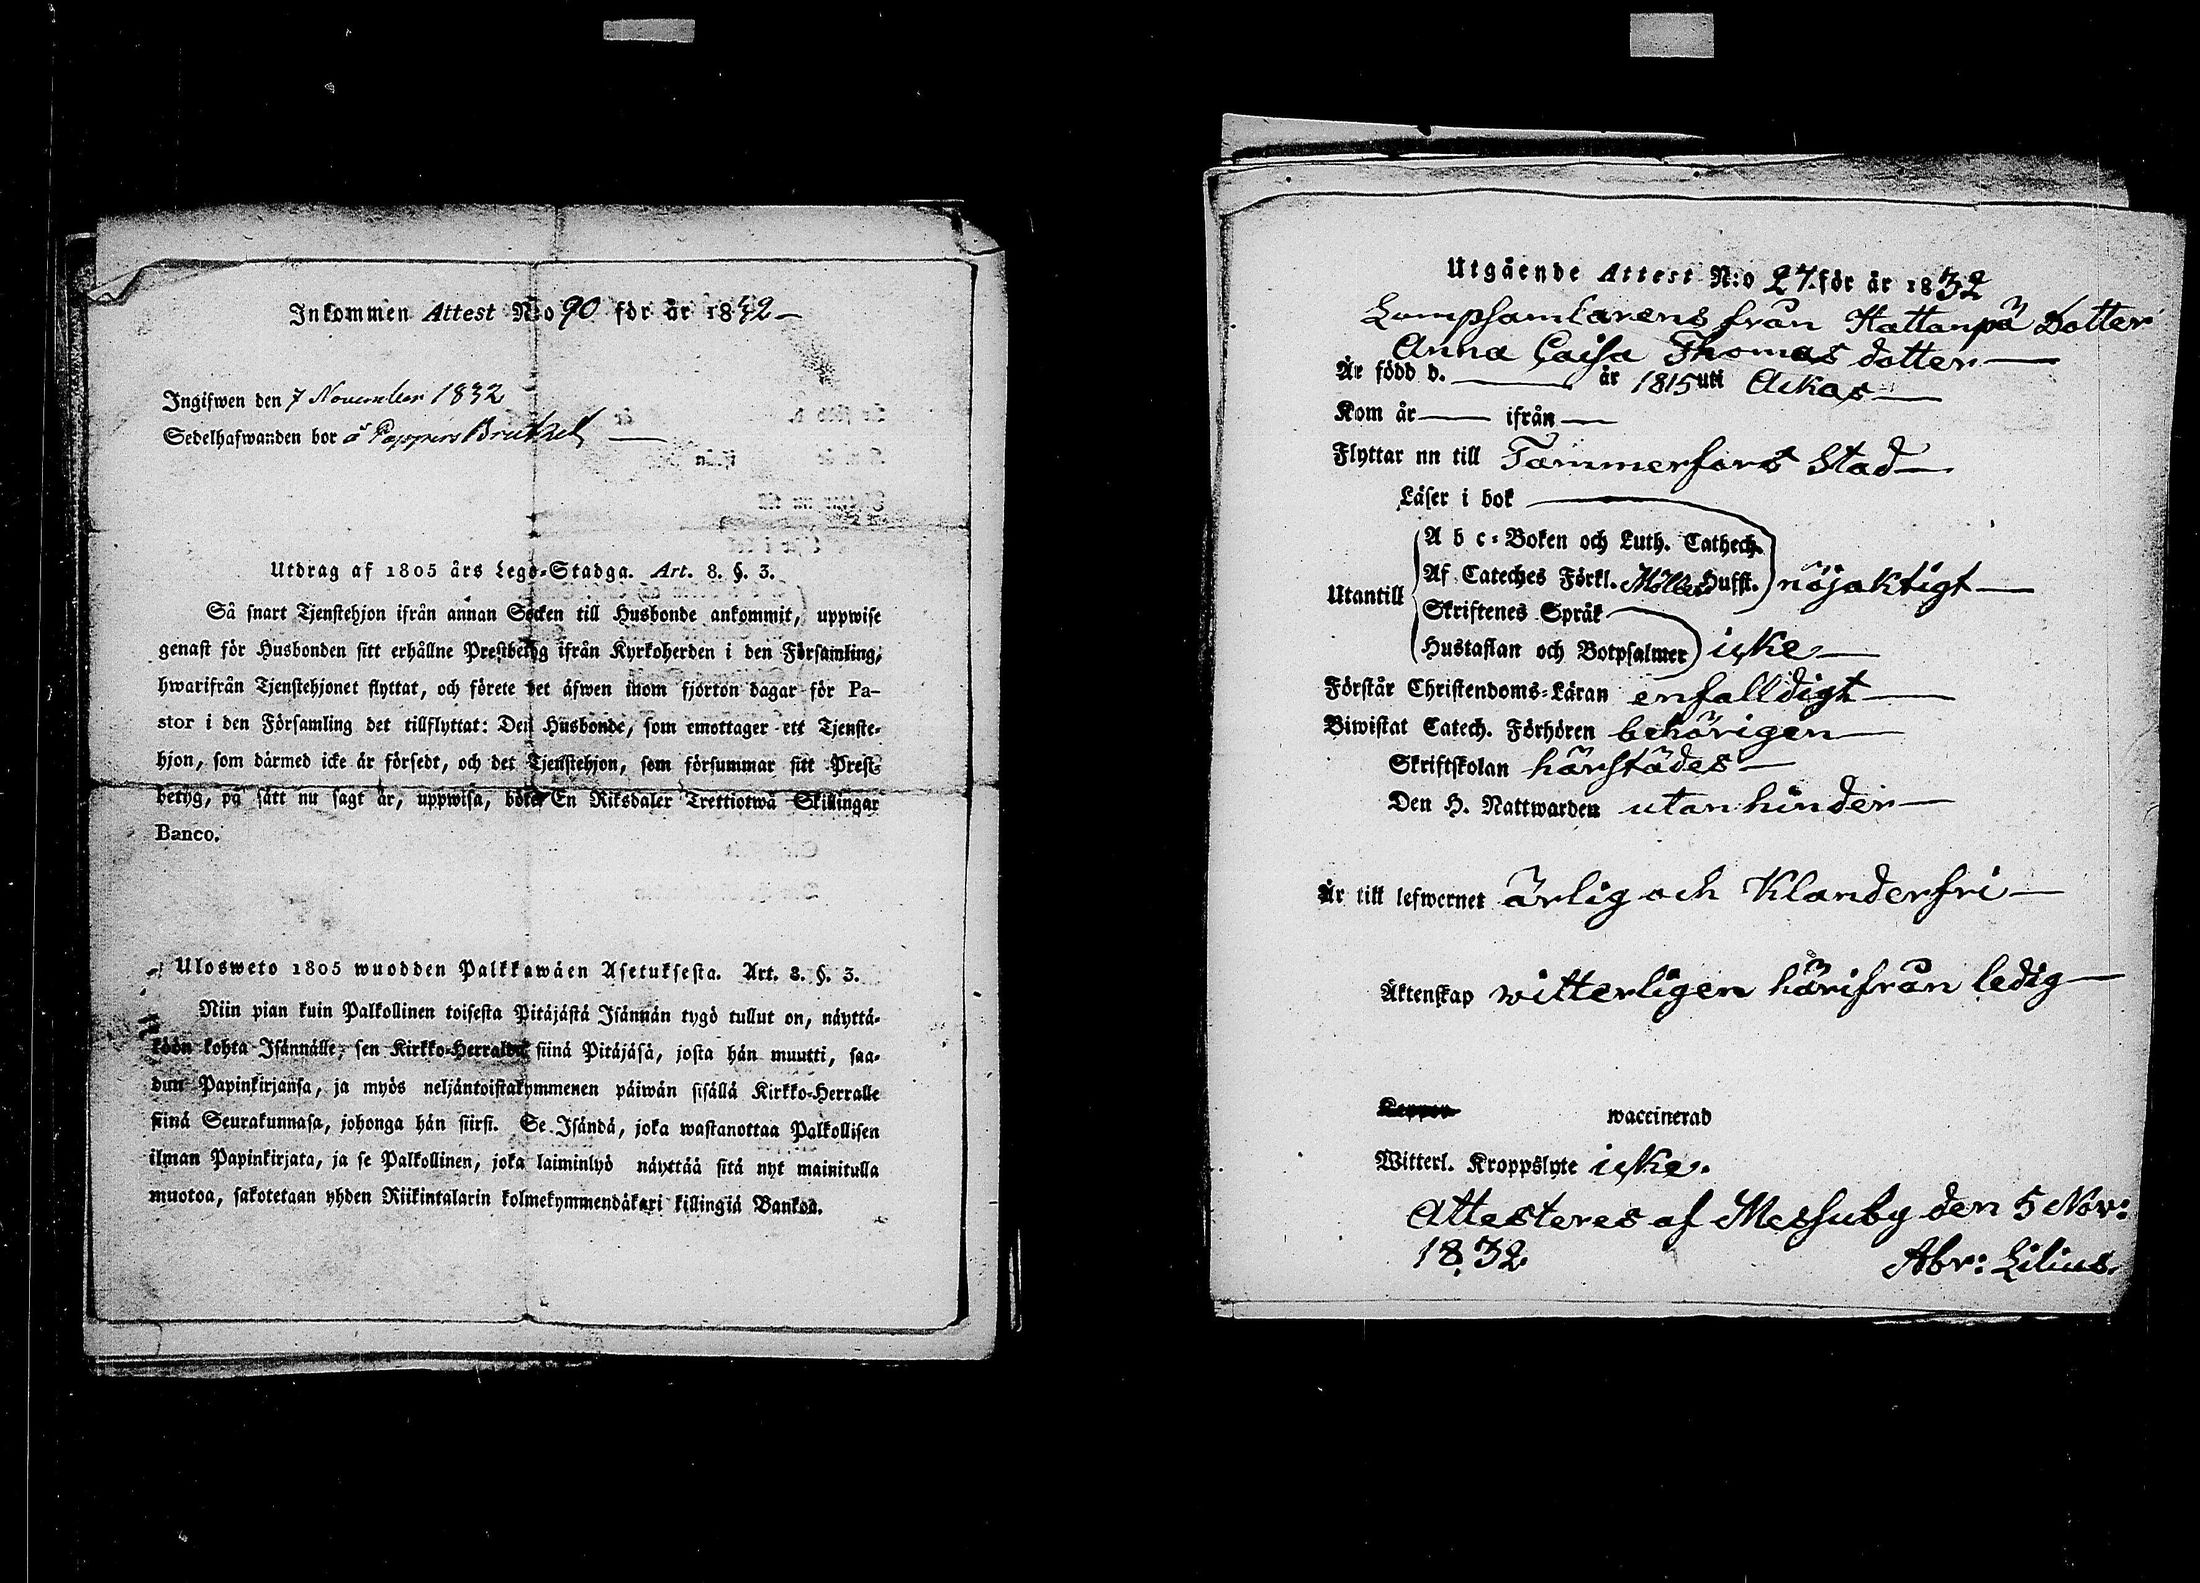 Inkommen Attest No 90 för år 1832
Ingifwen den 7 November 1832
Sedelhafwanden bor å Pappers Bruket
Utdrag af 1805 års Lego-Stadga. Art. 8. §. 3.
Så snart Tjenstehjon ifrån annan Socken till Husbonde ankommit, uppwise
genast för Husbonden sitt erhållne Prestbetyg ifrån Kyrkoherden i den Församling,
hwarifrån Tjenstehjonet flyttat, och förete det äfwen inom fjorton dagar för Pa-
stor i den Församling det tillflyttat: Den Husbonde, som emottager ett Tjenste-
hjon, som därmed icke är försedt, och det Tjenstehjon, som försummar sitt Prest-
betyg, på sätt nu sagt är, uppwisa, böte En Riksdaler Trettiotwå Skillingar
Banco.
Ulosweto 1805 wuodden Palkkawäen Asetuksesta. Art. 8. §. 3.
Niin pian kuin Palkollinen toisesta Pitäjästä Isännän tygö tullut on, näyttä-
köön kohta Isännälle, sen Kirkko-Herralda siinä Pitäjäsä, josta hän muutti, saa-
dun Papinkirjansa, ja myös neljäntoistakymmenen päiwän sisällä Kirkko-Herralle
siinä Seurakunnasa, johonga hän siirsi. Se Isändä, joka wastanottaa Palkollisen
ilman Papinkirjata, ja se Palkollinen, joka laiminlyö näyttää sitä nyt mainitulla
muotoa, sakotetaan yhden Riikintalarin kolmekymmendäkaxi killingiä Bankoa.
Utgående Attest N:o 27 för år 1832
Lumpsamlarens från Hattanpä Dotter
Anna Caisa Thomas dotter
Är född d. år 1815 uti Ackas
Kom år ifrån
Flyttar nu till Tammerfors Stad
Läser i bok
A b c-Boken och Luth. Catech.
Af Cateches Förkl. Möllers Husst. nöjaktigt
Utantill
Skriftenes Språk
Hustaflan och Botpsalmer icke
Förstår Christendoms-Läran enfalldigt
Biwistat Catech. Förhören behörigen
Skriftskolan härstädes
Den H. Nattwarden utan hinder
Är till lefwernet ärlig och Klanderfri
Äktenskap witterligen härifrån ledig
waccinerad
Witterl. Kroppslyte icke.
Attesteres af Messuby den 5 Nov:
1832
Abr: Lilius.